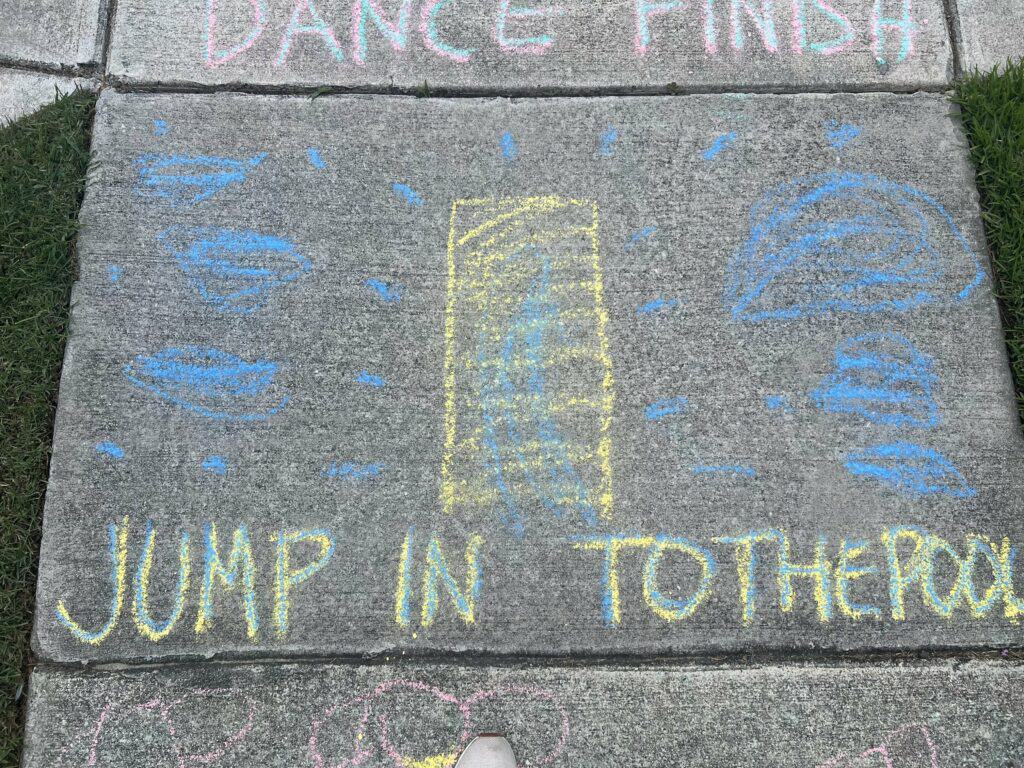 DANCE FINISH
JUMP IN TO THE POOL